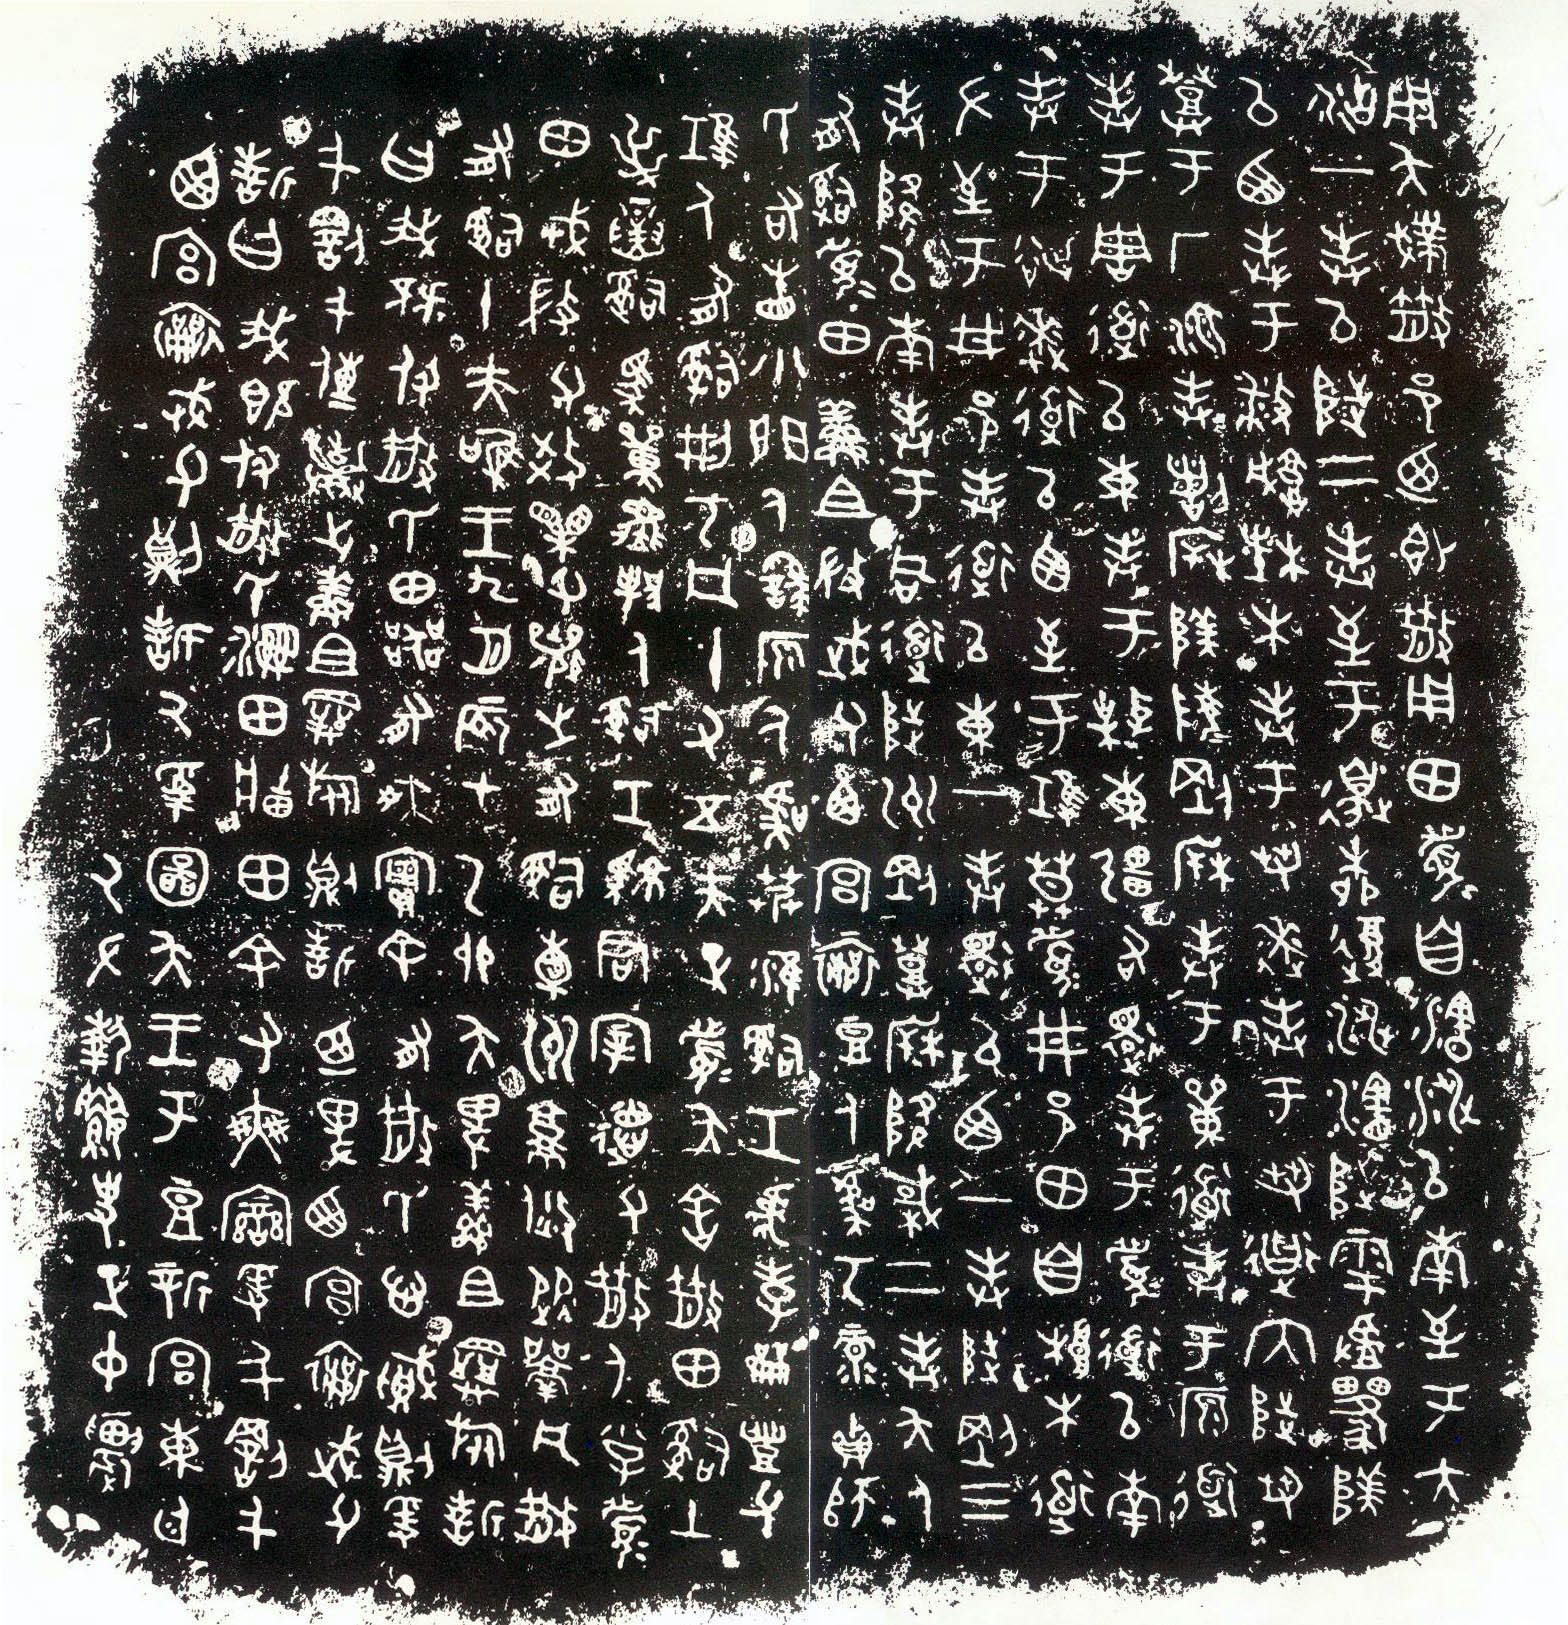 用夨撲散邑乃即散用田眉自瀗涉以南至于大
沽一封以陟二封至于邊柳復涉瀗陟雩
以西封于播城楮木封于芻逨封于芻道內陟芻
登于厂湶封割陵剛封于單道封于原道
封于周道以東封于東疆右還封于眉道以南
封于逨道以西至于鴻莫眉井邑田自桹木道
左至于井邑封道以東一封還以西一封陟剛三
封降以南封于同道陟州剛登降棫二封夨人
有司眉田鮮且微武父西宮襄豆人虞丂彔貞師
氏右眚小門人繇原人虞艿淮司工虎孝豐父
鴻人有司刑丂凡十又五夫正眉夨舍散田司土
屰寅司馬單邽人司工君宰德父散人小子眉
田戎微父效父襄之有司橐州就焂從凡散
有司十夫唯王九月辰在乙卯夨俾鮮且旅誓
曰我既付散氏田器有爽實余有散氏心賊則爰
千罰千傳棄之鮮且旅則誓乃俾西宮襄武父
誓曰我既付散氏濕田牆田余有爽變爰千罰千
西宮襄武父則誓厥受圖夨王于豆新宮東廷
厥左執史正中農